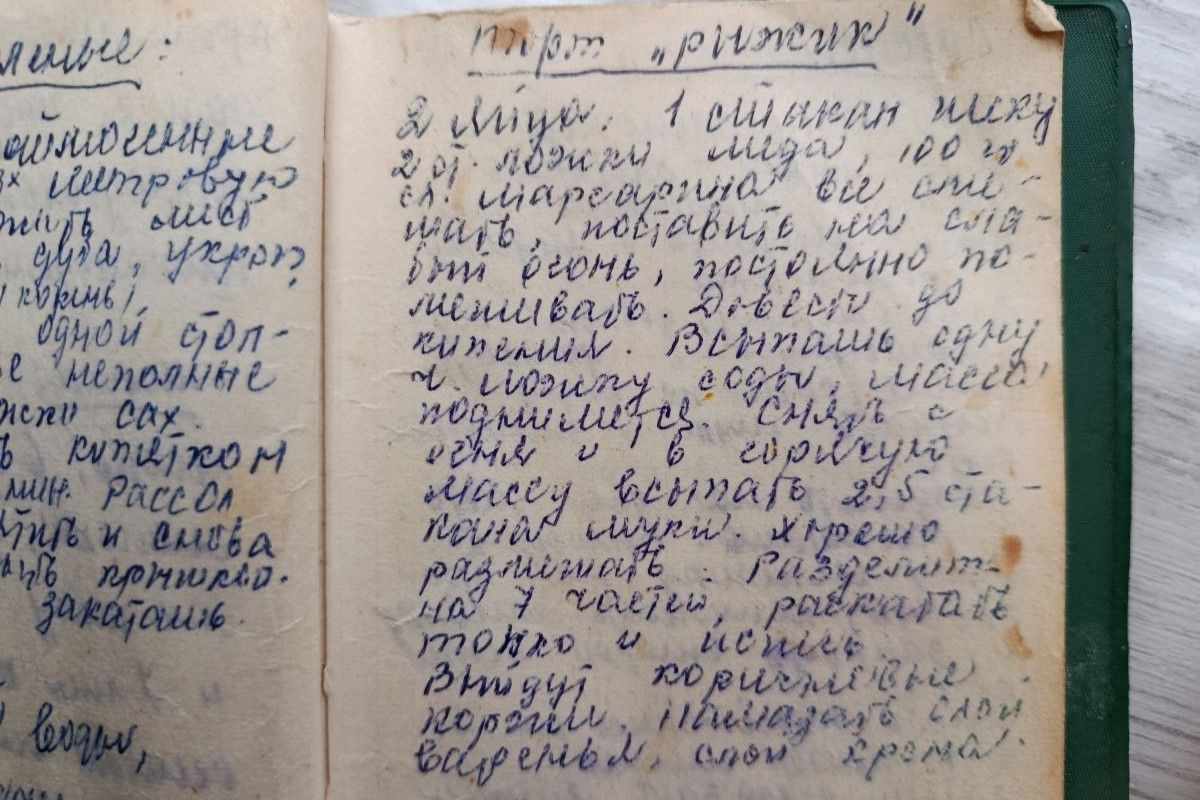 леные:
аймоченные
х метровую
ожить лист
дуба, укроп,
корень),
одной стол-
е неполные
ожки сах.
ь кипятком
мин. Рассол
тить и снова
крышкой.
закатать.
воды,
торт „рыжик"
2 яйца. 1 стакан песку
2 ст. ложки меда, 100 гр
сл. маргарина все сме-
шать, поставить на сла-
бый огонь, постоянно по-
мешивать. Довести до
кипения. Всыпать одну
ч. ложку соды, масса
поднимется. Снять с
огня и в горячую
массу всыпать 2,5 ста-
кана муки. Хорошо
размешать. Разделить
на 7 частей, раскатать
тонко и испечь.
Выйдут коричневые
коржи. Намазать слой
варенья, слой крема.